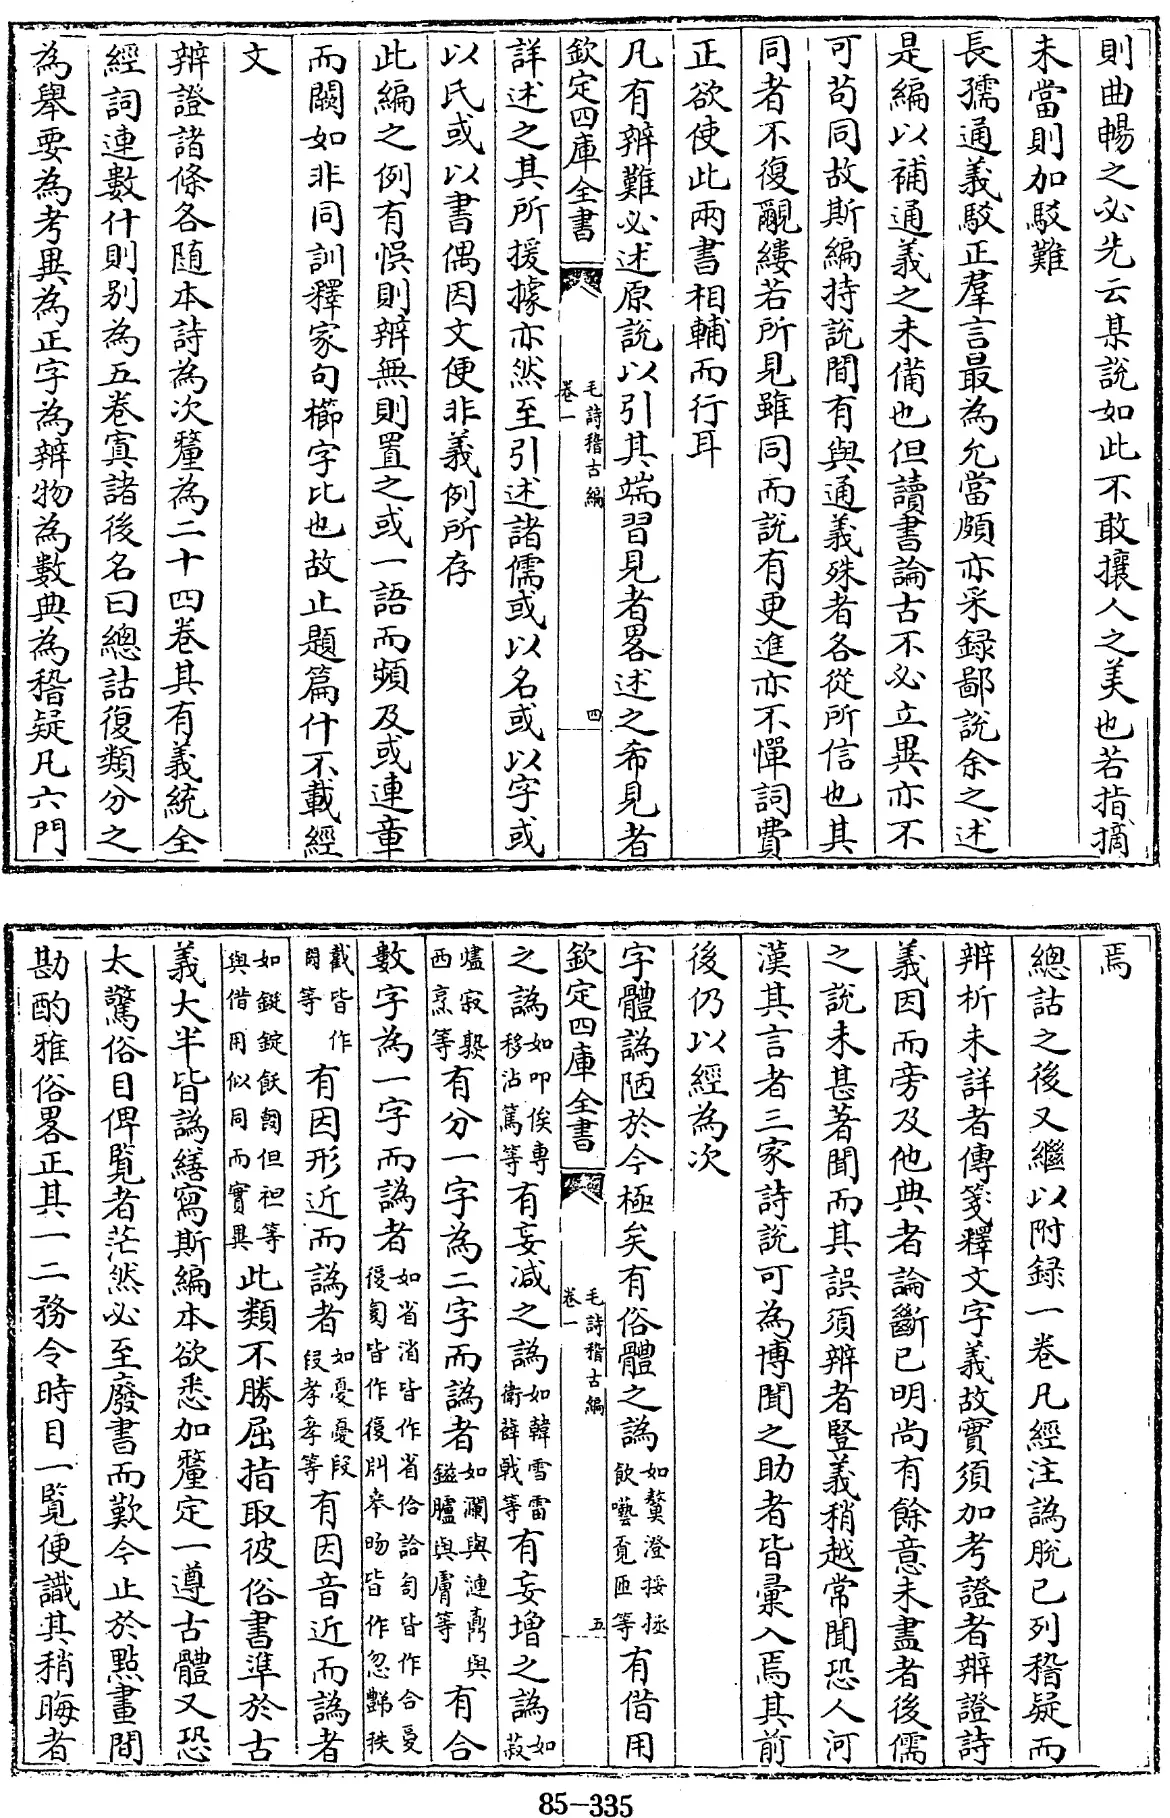 則曲暢之必先云某說如此不敢攘人之美也若指摘
未當則加駁難
長孺通義駁正羣言最為允當頗亦采録鄙說余之述
是編以補通義之未備也但讀書論古不必立異亦不
可苟同故斯編持說間有與通義殊者各從所信也其
同者不復覼縷若所見雖同而說有更進亦不憚詞費
正欲使此兩書相輔而行耳
凡有辨難必述原說以引其端習見者畧述之希見者
欽定四庫全書
毛詩稽古編
卷一
四
詳述之其所援據亦然至引述諸儒或以名或以字或
以氏或以書偶因文便非義例所存
此編之例有悞則辨無則置之或一語而頻及或連章
而闕如非同訓釋家句櫛字比也故止題篇什不載經
文
辨證諸條各随本詩為次釐為二十四卷其有義統全
經詞連數什則别為五卷寘諸後名曰總詁復類分之
為舉要為考異為正字為辨物為數典為稽疑凡六門
焉
總詁之後又繼以附録一卷凡經注譌脫已列稽疑而
辨析未詳者傳箋釋文字義故實須加考證者辯證詩
義因而旁及他典者論斷已明尚有餘意未盡者後儒
之說未甚著聞而其誤須辨者豎義稍越常聞恐人河
漢其言者三家詩說可為博聞之助者皆彙入焉其前
後仍以經為次
字體譌陋於今極矣有俗體之譌如鼇澄挼拯飲囈覔匝等有借用
欽定四庫全書
毛詩稽古編
卷一
五
之譌如叩俟専移沾篤等有妄減之譌如韓雪雷衛薛戟等有妄增之譌如菽
爐寂漿西烹等有分一字為二字而譌者如瀾與漣鬲與鎰臚與膚等有合
數字為一字而譌者如省消皆作省佮詥匌皆作合𠬪復㚆皆作復𠛱㚏昒皆作忽豑秩
截皆作等有因形近而譌者如憂㥑段叚孝𡥈等有因音近而譌者
如鋌錠飫但袒等與借用似同而實異此類不勝屈指取彼俗書準於古
義大半皆譌繕寫斯編本欲悉加釐定一遵古體又恐
太驚俗目俾覧者茫然必至廢書而歎今止於點畫間
勘酌雅俗畧正其一二務令時目一覧便識其稍晦者
85-335